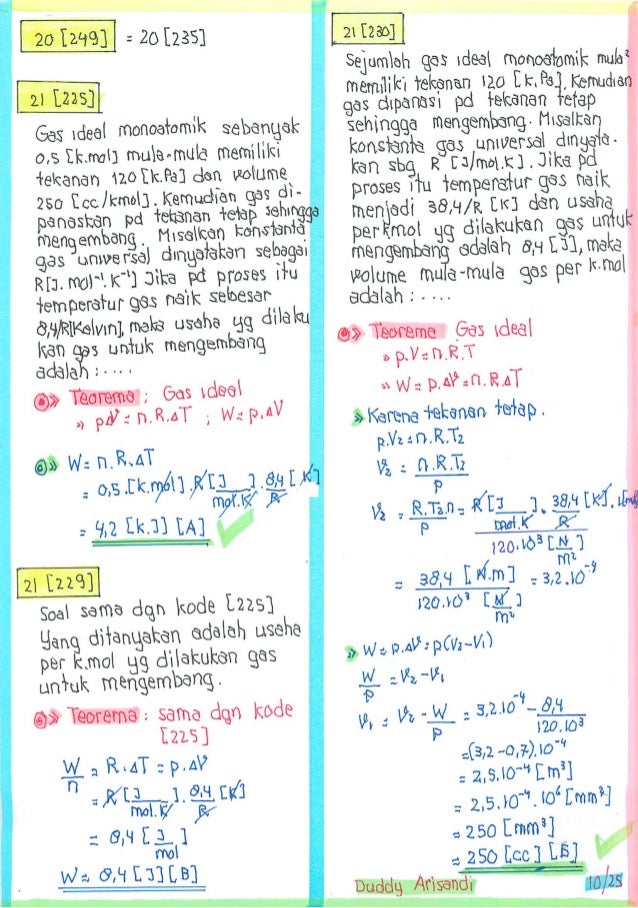 20 [249] = 20 [235]
21 [225]
Gas ideal monoatomik sebanyak
0,5 [k.mol] mula-mula memiliki
tekanan 120 [k.Pa] dan volume
250 [cc/kmol]. Kemudian gas di-
panaskan pd tekanan tetap sehingga
mengembang. Misalkan konstanta
gas universal dinyatakan sebagai
R[J. mol⁻¹. K⁻¹] Jika pd proses itu
temperatur gas naik sebesar
8,4/R[Kelvin], maka usaha yg dilaku
kan gas untuk mengembang
adalah : ....
Teorema : Gas ideal
» p.ΔV = n.R.ΔT ; W = p.ΔV
W = n.R.ΔT
= 0,5.[k.mol] R [J / mol.K] . 8,4/R [K]
= 4,2 [k.J] [A]
21 [229]
Soal sama dgn kode [225]
Yang ditanyakan adalah usaha
per k.mol yg dilakukan gas
untuk mengembang.
Teorema : sama dgn kode
[225]
W/n = R.ΔT = p.ΔV
= R [J / mol.K] . 8,4/R [K]
= 8,4 [J / mol]
W = 8,4 [J] [B]
21 [230]
Sejumlah gas ideal monoatomik mula²
memiliki tekanan 120 [k.Pa]. Kemudian
gas dipanasi pd tekanan tetap
sehingga mengembang. Misalkan
konstanta gas universal dinyata-
kan sbg R [J/mol.K]. Jika pd
proses itu temperatur gas naik
menjadi 38,4/R [K] dan usaha
perkmol yg dilakukan gas untuk
mengembang adalah 8,4 [J], maka
volume mula-mula gas per k.mol
adalah : ....
Teorema Gas ideal
» p.V = n.R.T
» W = p.ΔV = n.R.ΔT
» Karena tekanan tetap.
p.V₂ = n.R.T₂
V₂ = n.R.T₂ / p
V₂ = R.T₂.n / p = R [J / mol.K] . 38,4/R [K]. / 120.10³ [N / m²]
= 38,4 [N.m] / 120.10³ [N / m²] = 3,2.10⁻⁴
» W = p.ΔV = p(V₂-V₁)
W/p = V₂-V₁
V₁ = V₂ - W/p = 3,2.10⁻⁴ - 8,4 / 120.10³
= (3,2 -0,7).10⁻⁴
= 2,5.10⁻⁴ [m³]
= 2,5.10⁻⁴. 10⁶ [mm³]
= 250 [mm³]
= 250 [cc] [B]
Duddy Arisandi 10/25